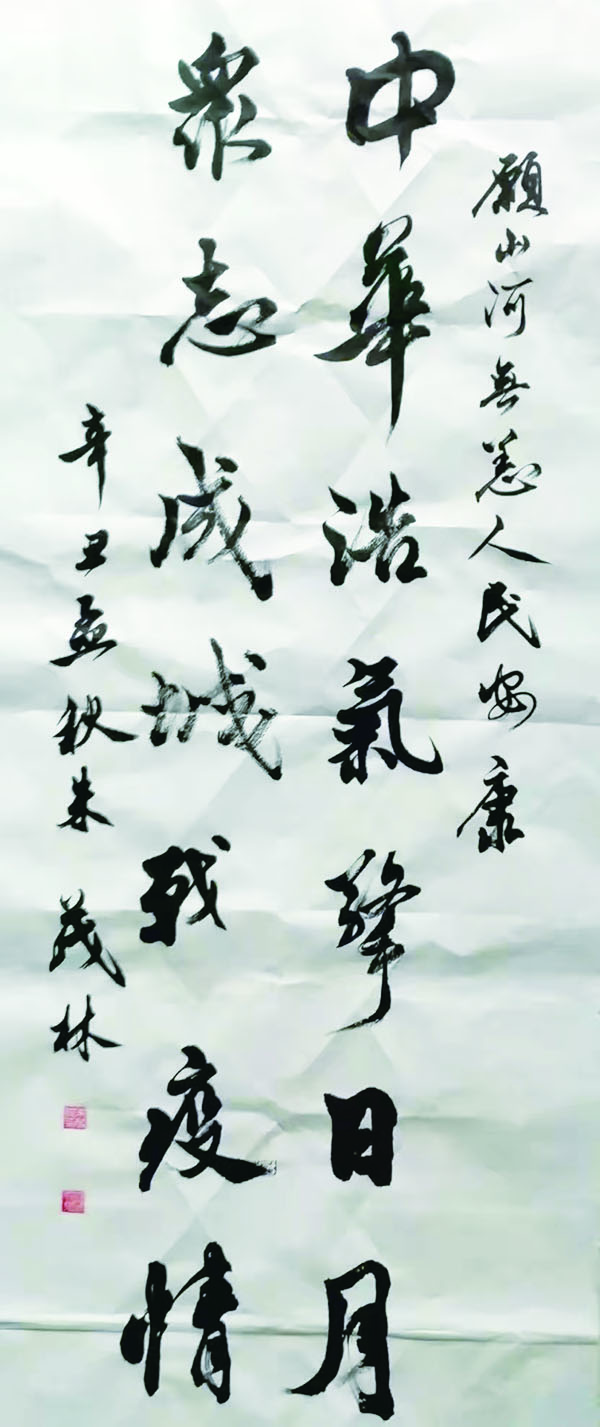 願山河無恙人民安康
中華浩氣擎日月
衆志成城戰疫情
辛丑孟秋朱茂林